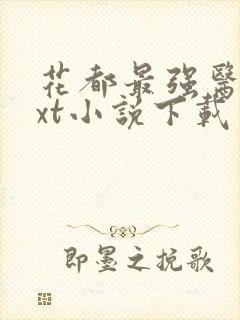 花都最强醫
xt小説下載
即墨之挽歌